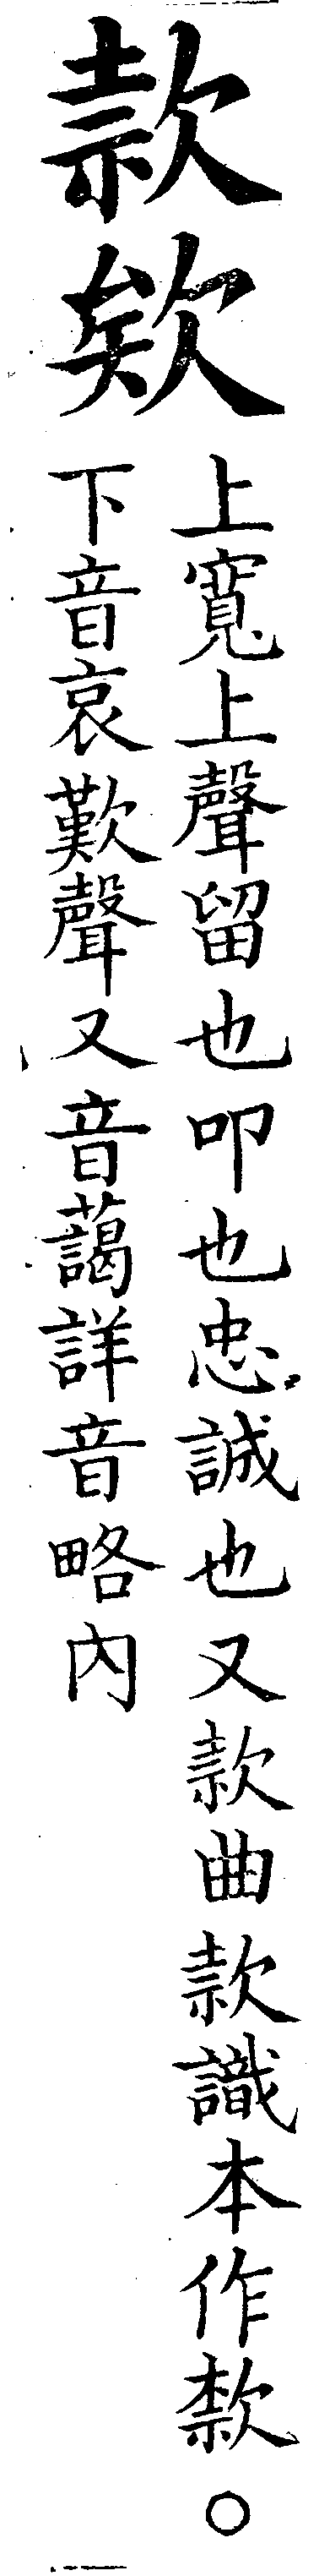 款欸
上寬上聲留也叩也忠誠也又款曲款識本作𣢾○
下音哀歎聲又音藹詳音略內